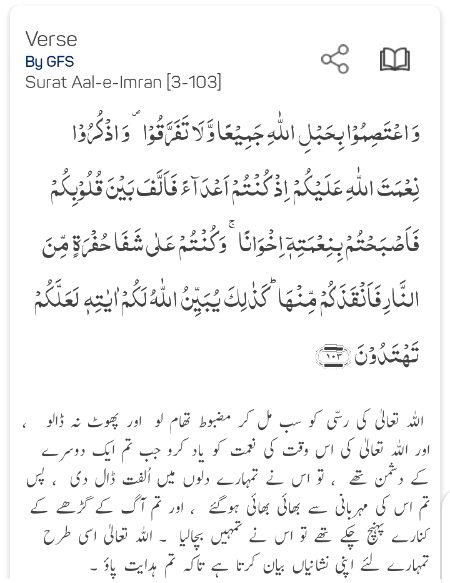 Verse
By GFS
Surat Aal-e-Imran [3-103]
وَاعْتَصِمُوْا بِحَبْلِ اللّٰهِ جَمِيْعًا وَّلَا تَفَرَّقُوْا ۪ وَاذْكُرُوْا
نِعْمَتَ اللّٰهِ عَلَيْكُمْ اِذْ كُنْتُمْ اَعْدَآءً فَاَلَّفَ بَيْنَ قُلُوْبِكُمْ
فَاَصْبَحْتُمْ بِنِعْمَتِهٖۤ اِخْوَانًا ۚ وَكُنْتُمْ عَلٰى شَفَا حُفْرَةٍ مِّنَ
النَّارِ فَاَنْقَذَكُمْ مِّنْهَا ؕ كَذٰلِكَ يُبَيِّنُ اللّٰهُ لَكُمْ اٰيٰتِهٖ لَعَلَّكُمْ
تَهْتَدُوْنَ ﴿۱۰۳﴾
اللہ تعالیٰ کی رسّی کو سب مل کر مضبوط تھام لو اور پھوٹ نہ ڈالو ،
اور اللہ تعالیٰ کی اس وقت کی نعمت کو یاد کرو جب تم ایک دوسرے
کے دشمن تھے ، تو اس نے تمہارے دلوں میں اُلفت ڈال دی ، پس
تم اس کی مہربانی سے بھائی بھائی ہوگئے ، اور تم آگ کے گڑھے کے
کنارے پہنچ چکے تھے تو اس نے تمہیں بچالیا ۔ اللہ تعالیٰ اسی طرح
تمہارے لئے اپنی نشانیاں بیان کرتا ہے تاکہ تم ہدایت پاؤ ۔